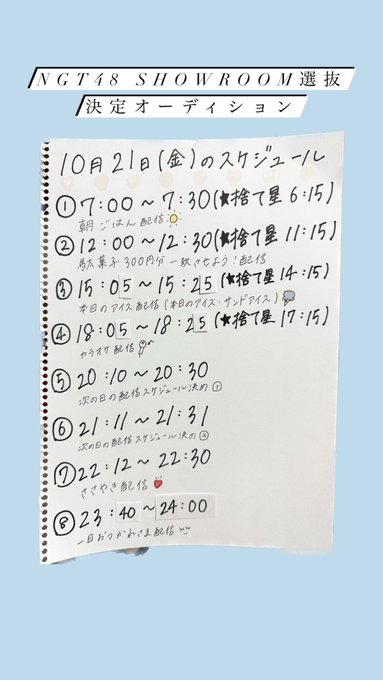 NGT48 SHOWROOM選抜
決定オーディション
10月21日(金)のスケジュール
①7:00〜7:30(★捨て星 6:15)
朝ごはん配信
②12:00〜12:30(★捨て星 11:15)
駄菓子300円分一致させよう!配信
③15:05〜15:25(★捨て星 14:15)
本日のアイス配信(本日のアイス・サンドアイス)
④18:05〜18:25(★捨て星 17:15)
カラオケ配信
⑤20:10〜20:30
次の日の配信スケジュール決め①
⑥21:11〜21:31
次の日の配信スケジュール決め②
⑦22:12〜22:30
ささやき配信
⑧23:40〜24:00
一日おつかれさま配信